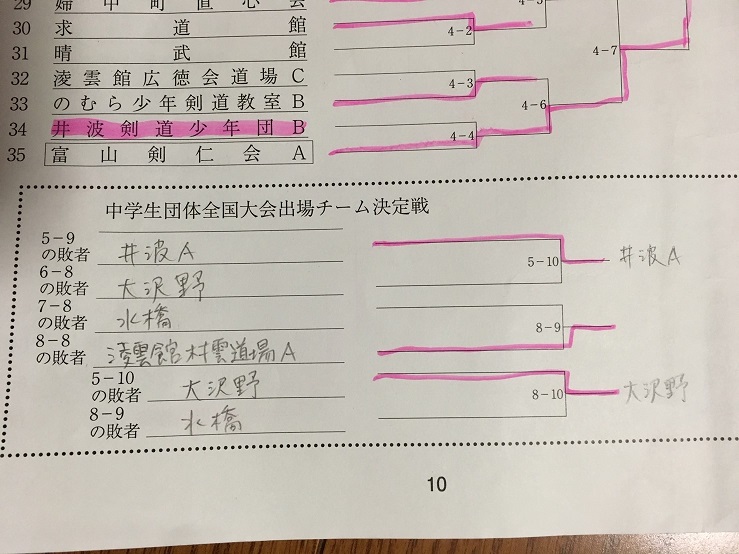 29 婦中町直心会
30 求道館 4-2
31 晴武館 4-7
32 淩雲館広徳会道場C 4-3
33 のむら少年剣道教室B 4-6
34 井波剣道少年団B 4-4
35 富山剣仁会A
中学生団体全国大会出場チーム決定戦
5-9の敗者 井波A 5-10 井波A
6-8の敗者 大沢野
7-8の敗者 水橋 8-9
8-8の敗者 淩雲館村雲道場A
5-10の敗者 大沢野 8-10 大沢野
8-9の敗者 水橋
10